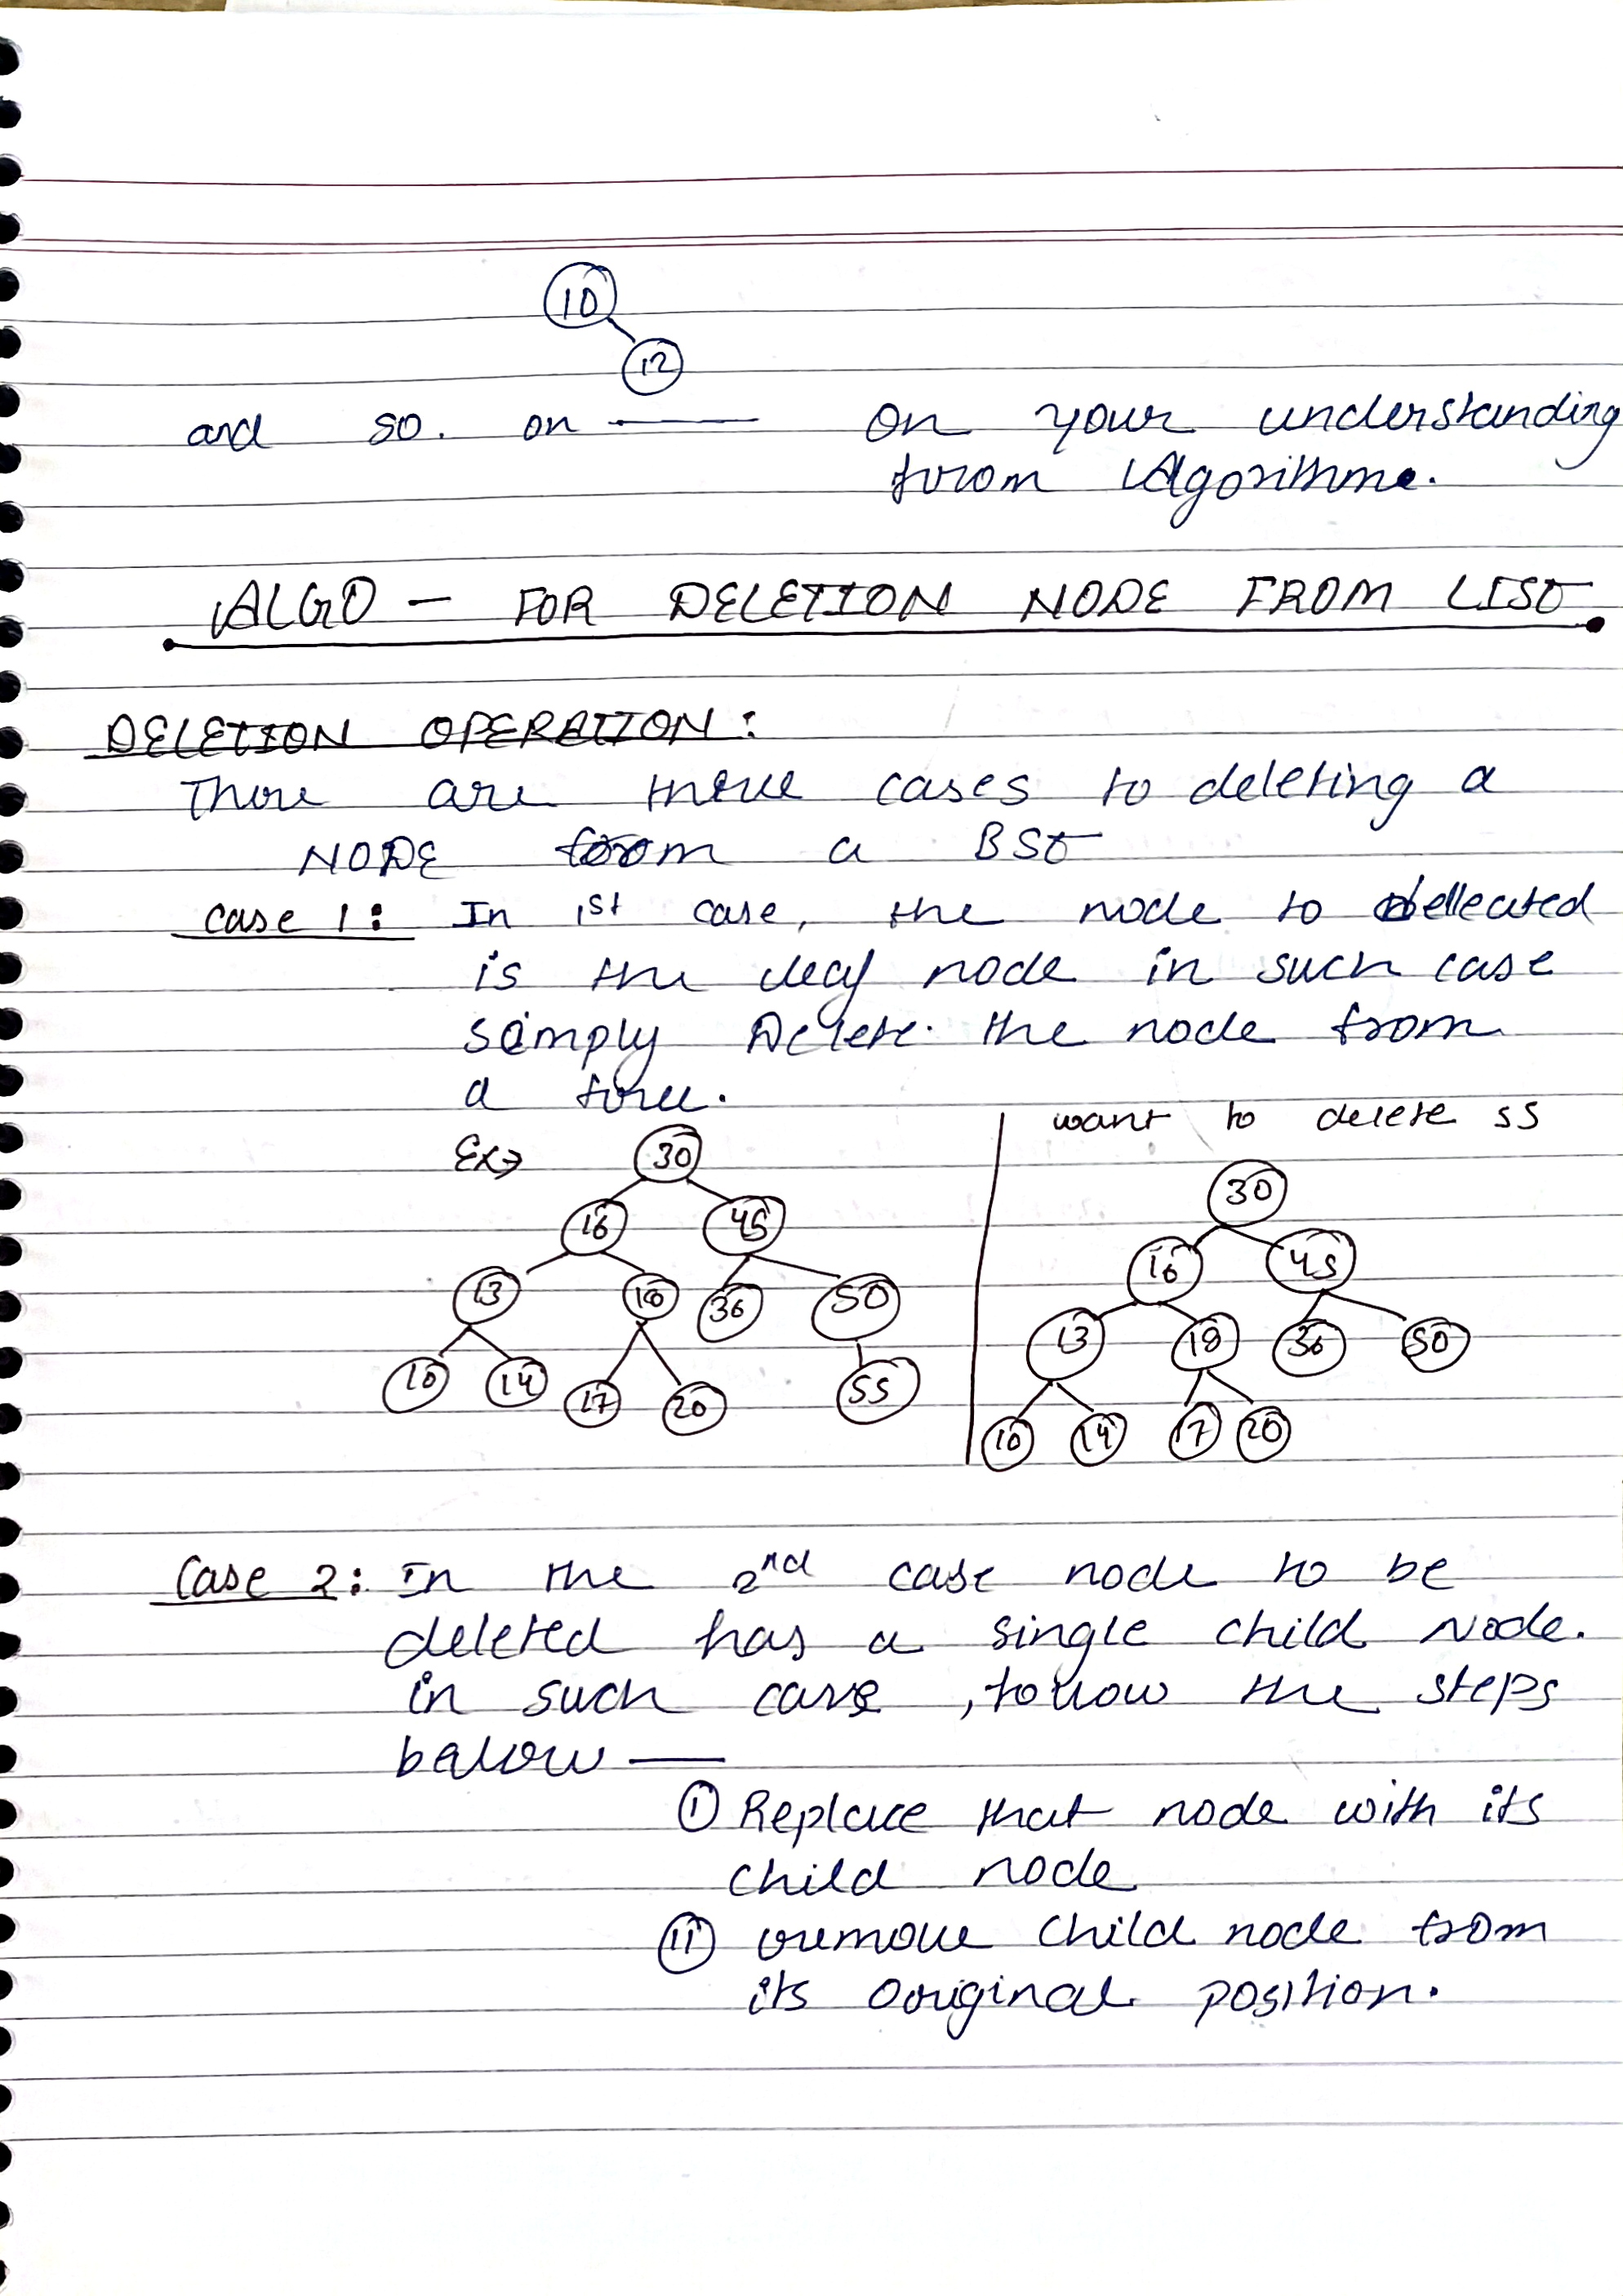 10
12
and so. on — on your understanding
from Algorithme.
ALGO - FOR DELETION NODE FROM LIST
DELETION OPERATION:
There are three cases to deleting a
NODE from a BST
case 1: In 1st case, the node to delleated
is the leaf node in such case
simply Delete. the node from
a tree.
want to delete 55
Ex→ 30
30
16 45
16 45
13 18 36 50
13 18 36 50
10 14 17 20 55
10 14 17 20
Case 2: In the 2nd case node to be
deleted has a single child Node.
in such case, follow the steps
below —
(i) Replace that node with its
child node
(ii) remove child node from
its original position.